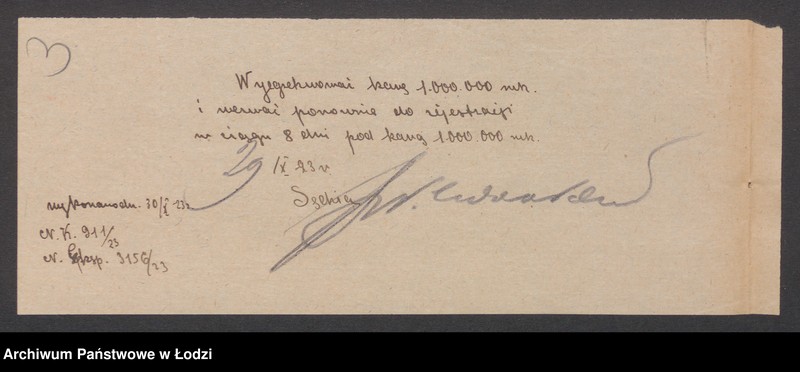 3
Wyegzekwować karę 1.000.000 mk.
i wezwać ponownie do rejestracji
w ciągu 8 dni pod karą 1.000.000 mk.
29/X 23 r.
Sędzia
wykonano dn. 30/X 23 r.
N. K. 911/23
N. Eksp. 3156/23
Archiwum Państwowe w Łodzi